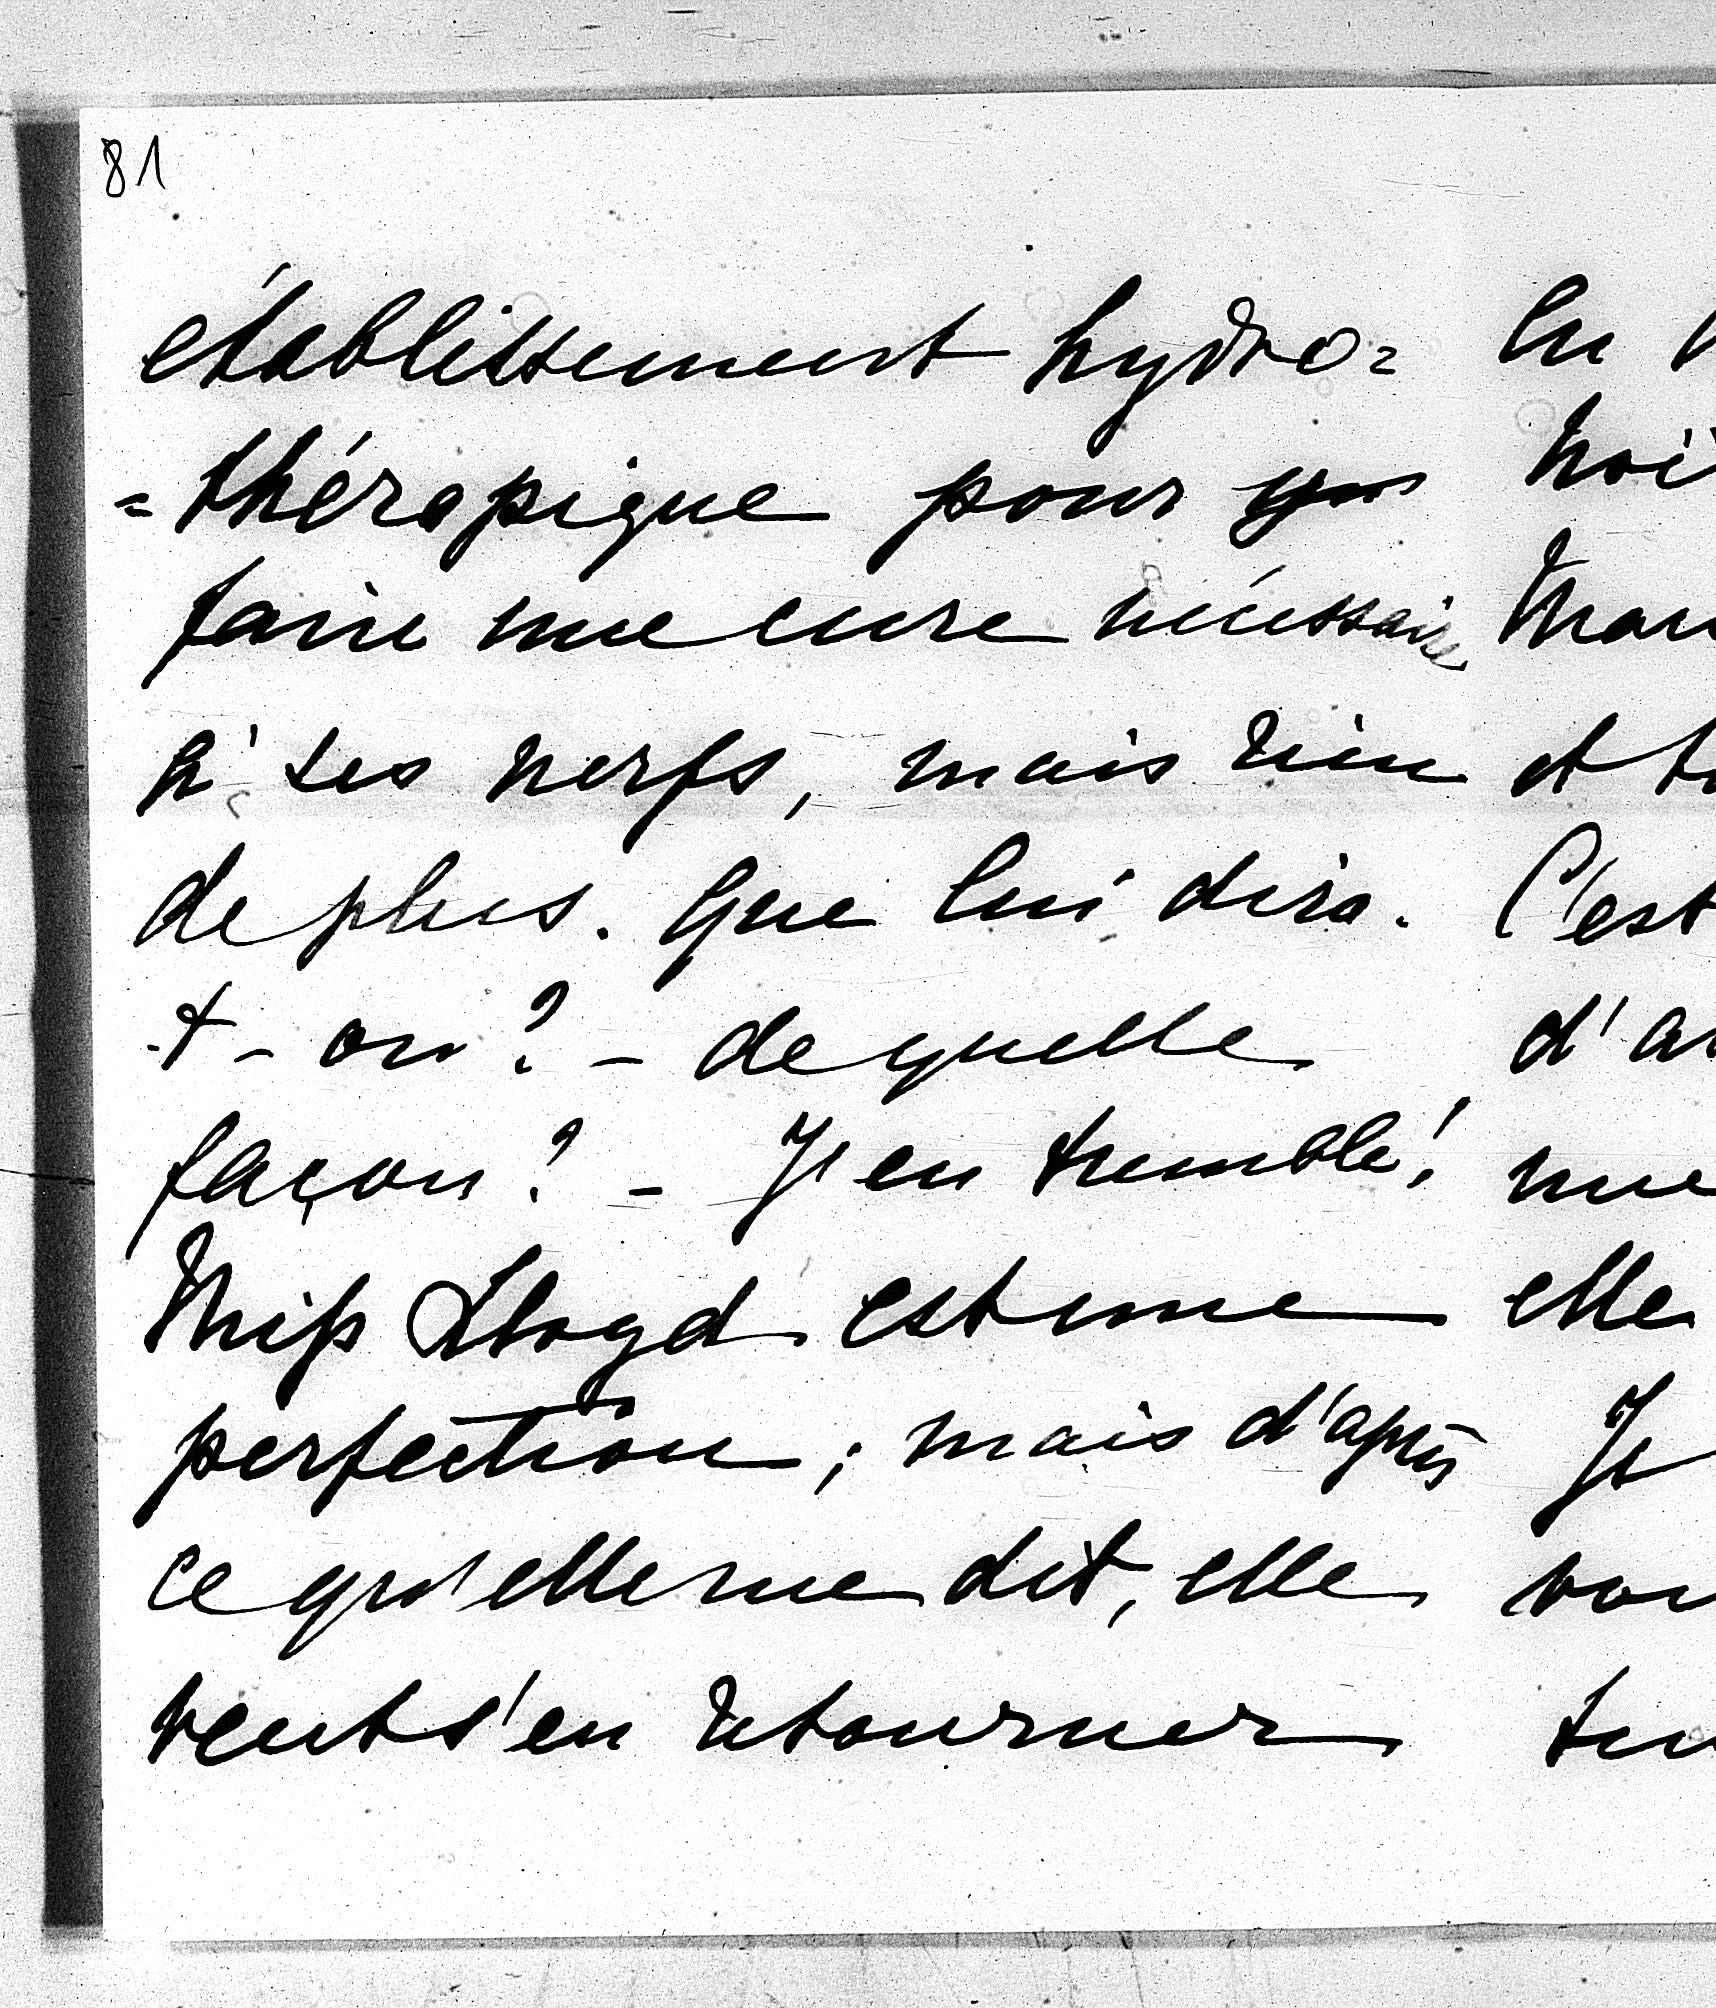 81
établissement hydro=
=thérapique pour y
faire une cure nécessaire
à ses nerfs, mais rien
de plus. Que lui dira-
-t-on? - de quelle
façon? - J'en tremble!
Miss Lloyd est une
perfection; mais d'après
ce qu'elle me dit, elle
veut s'en retourner
et
C'est
d'a
elle
Je